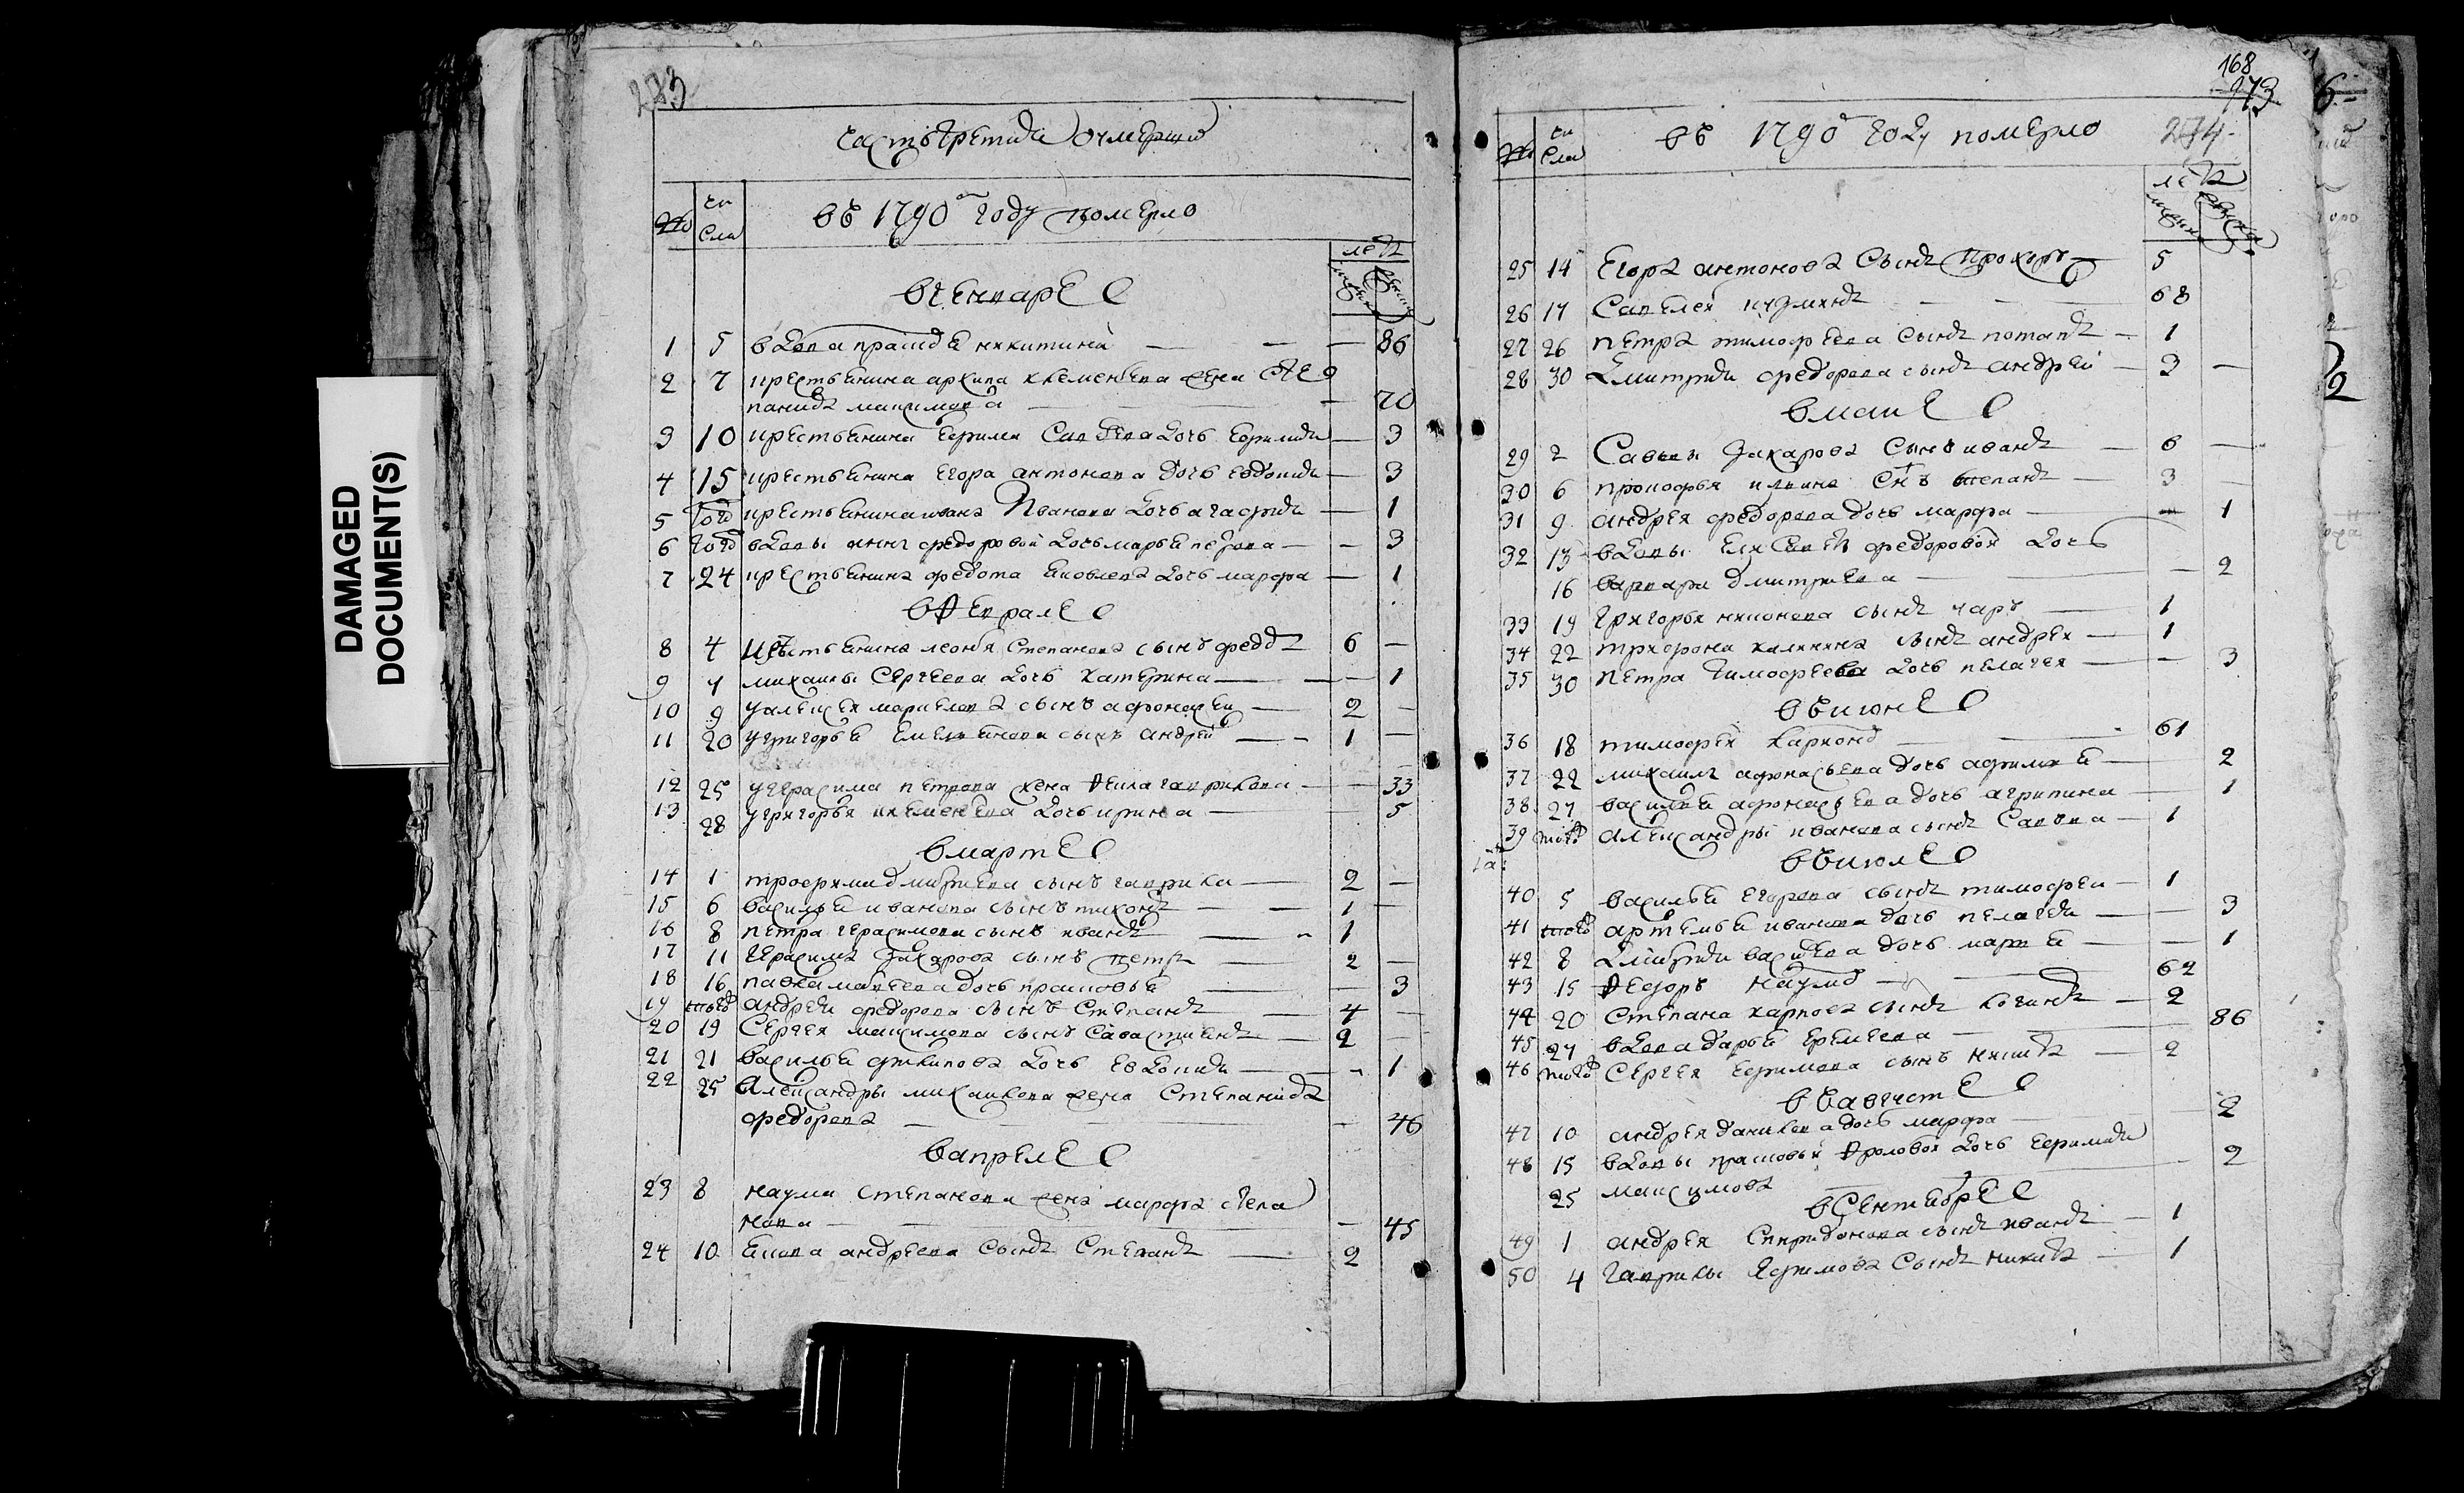 DAMAGED
DOCUMENT(S)
283
часть третия о умерших
чи
сла
въ 1790м году померло
летъ
въ енваре
1 5 вдова прасковья никитина — 86
2 7 крестьянина архипа клементьева жена сте
панида максимова — 70
3 10 крестьянина ефима савельева дочь ефимия — 3
4 15 крестьянина егора антонова дочь евдокия — 3
5 тогож крестьянина ивана иванова дочь агафия — 1
6 тогож вдовы анны федоровой дочь марья — 3
7 24 крестьянина федота яковлева дочь марфа — 1
в феврале
8 4 крестьянина леонтья степанова сынъ федотъ 6 —
9 4 михаилы сергеева дочь катерина — 1
10 9 у алексея сынъ афонасей — 2 —
11 20 у григорья емельянова сынъ андрей — 1 —
12 25 у герасима петрова жена фекла гаврилова — 33
13 28 у григорья клементьева дочь ирина — 5
в марте
14 1 трофима дмитриева сынъ гаврила — 2 —
15 6 василья иванова сынъ тихонъ — 1 —
16 8 петра герасимова сынъ иванъ — 1
17 11 герасима захарова сынъ петръ — 2 —
18 16 павла матвеева дочь прасковья — 3
19 тогож андрея федорова сынъ степанъ — 4 —
20 19 сергея максимова сынъ савастьянъ — 2 —
21 21 василья дочь евдокия — 1
22 25 александры михаилова жена степанида
федорова — 46
в апреле
23 8 наума степанова жена марфа степа
нова — 45
24 10 якова андреева сынъ степанъ — 2
168
273
чи
сла
въ 1790м году померло
274
летъ
25 14 егора антонова сынъ прохоръ — 5
26 17 савелей — 68
27 26 петра тимофеева сынъ потапъ — 1
28 30 дмитрия федорова сынъ андрей — 3 —
в маие
29 2 савы захарова сынъ иванъ — 6 —
30 6 прокофья ильина снъ степанъ — 3 —
31 9 андрея федорова дочь марфа — 1
32 13 вдовы елисаветы федоровой дочь
16 варвара дмитриева — 2
33 19 григорья сынъ — 1
34 22 трифона калинина сынъ андрей — 1
35 30 петра тимофеева дочь пелагея — 3
въ июне
36 18 тимофей — 61
37 22 михаила афонасьева дочь — 2
38 27 василья афонасьева дочь агрипина — 1
39 тогож александры иванова сынъ савва — 1
въ июле
40 5 василья егорова сынъ тимофей — 1
41 тогож артемья иванова дочь пелагея — 3
42 8 дмитрия васильева дочь марья — 1
43 15 федоръ наумовъ — 62
44 20 степана карпова сынъ логинъ — 2
45 27 вдова дарья еремеева — 86
46 тогож сергея ефимова сынъ никита — 2
въ августе
47 10 андрея данилова дочь марфа — 2
48 15 вдовы прасковьи фроловой дочь ефимия
25 максимова — 2
в сентябре
49 1 андрея спиридонова сынъ иванъ — 1
50 4 гаврилы ефимова сынъ никита — 1